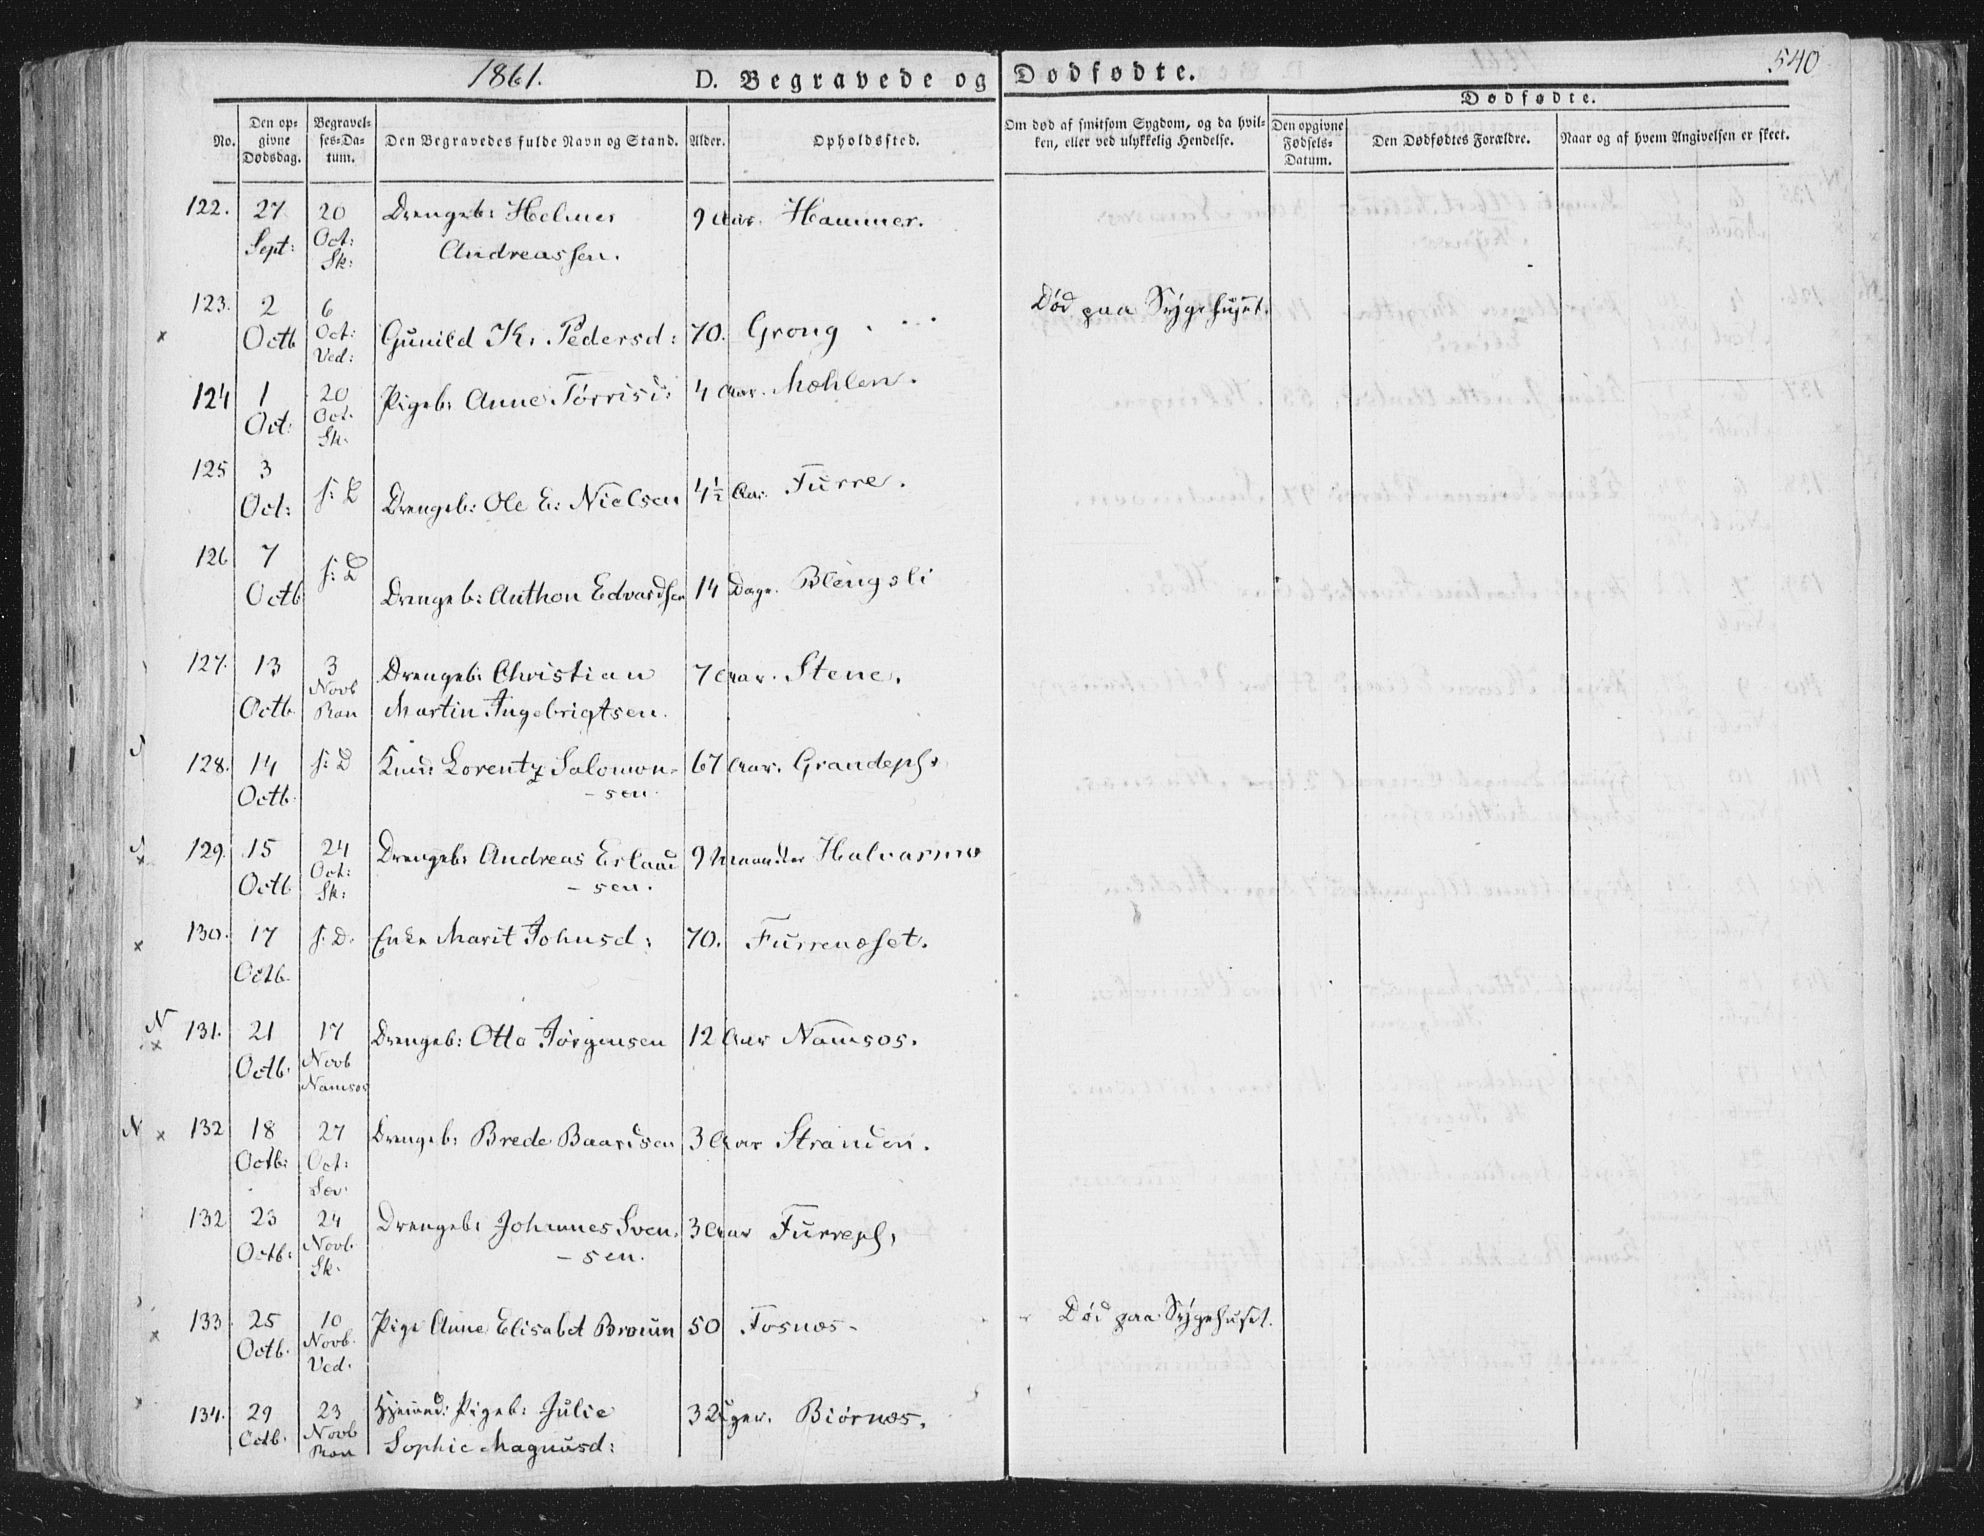 1861. D. Begravede og Dødfødte. 540
No. Den opgivne Dødsdag. Begravelses-Datum. Den Begravedes fulde Navn og Stand. Alder. Opholdssted. Om død af smitsom Sygdom, og da hvilken, eller ved ulykkelig Hendelse. Dødfødte. Den opgivne Fødsels-Datum. Den Dødfødtes Forældre. Naar og af hvem Angivelsen er skeet.
122. 27 20 Drengeb: Helmer 9 Aar. Hammer.
Sept: Oct: Sk: Andreassen.
123. 2 6 Død paa Sygehuset.
Octb Oct: Ved: Gunild K. Pedersd: 70. Grong
124 1 20 Pigeb: Anne Tørrisd: 4 Aar. Mæhlen.
Oct: Oct. Sk.
125 3
Oct: s: D Drengeb: Ole E: Nielsen 4½ Aar. Furre.
126 7 s: D
Octb Drengeb: Anthon Edvardsen 14 Dage. Blengsli
127. 13 3 Drengeb: Christian 7 Aar. Stene.
Octb. Novb Ran Martin Ingebrigtsen.
128. 14 s: D Lorentz Salomon- 67 Aar. Grandepl.
Octb. -sen.
129. 15 24 Drengeb: Andreas Erland 9 Maaneder Halvarmo
Octb Oct: Sk: -sen.
130. 17 s. D. Enke Marit Johnsd: 70. Furrenæset.
Octb.
N 131. 21 17 Drengeb: Otto Jørgensen 12 Aar Namsos.
Octb. Novb Namsos
N x 132 18 27 Drengeb: Brede Baardsen 3 Aar Stranden.
Octb: Oct: Sæv.
132 23 24 Drengeb: Johannes Sven- 3 Aar Furrepl,
Octb: Novb. Sk. -sen.
133 25 10 Pige Anne Elisabet Brauun 50 Fosnæs- Død paa Sygehuset.
Octb. Novb. Ved.
134. 29 23 Hjemmed: Pigeb: Julie 3 Uger. Biørnæs.
Octb. Novb Ran Sophie Magnusd: